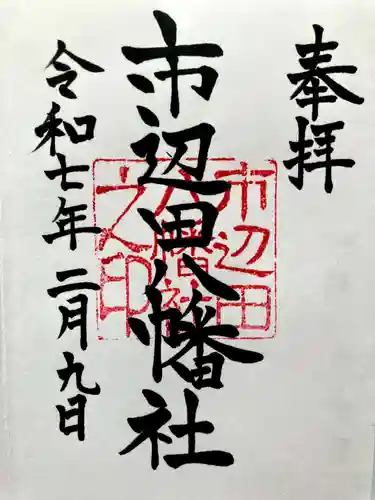 奉拝
市辺田八幡社
市辺田
八幡社
之印
令和七年二月九日